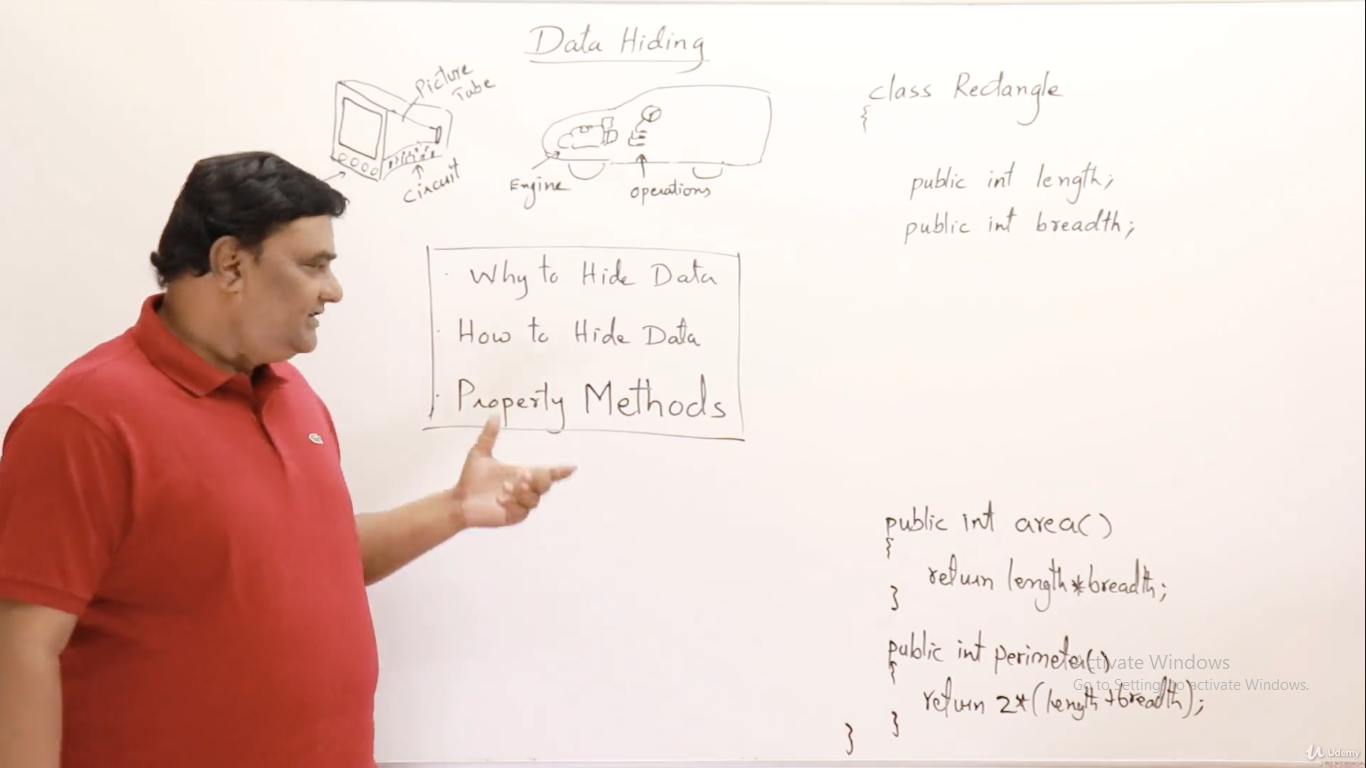 Data Hiding
Picture
Tube
Circuit
Engine
operations
Why to Hide Data
How to Hide Data
Property Methods
class Rectangle
{
public int length;
public int breadth;
public int area()
{
return length*breadth;
}
public int perimeter()
{
return 2*(length+breadth);
}
}
Activate Windows
Go to Settings to activate Windows.
Udemy